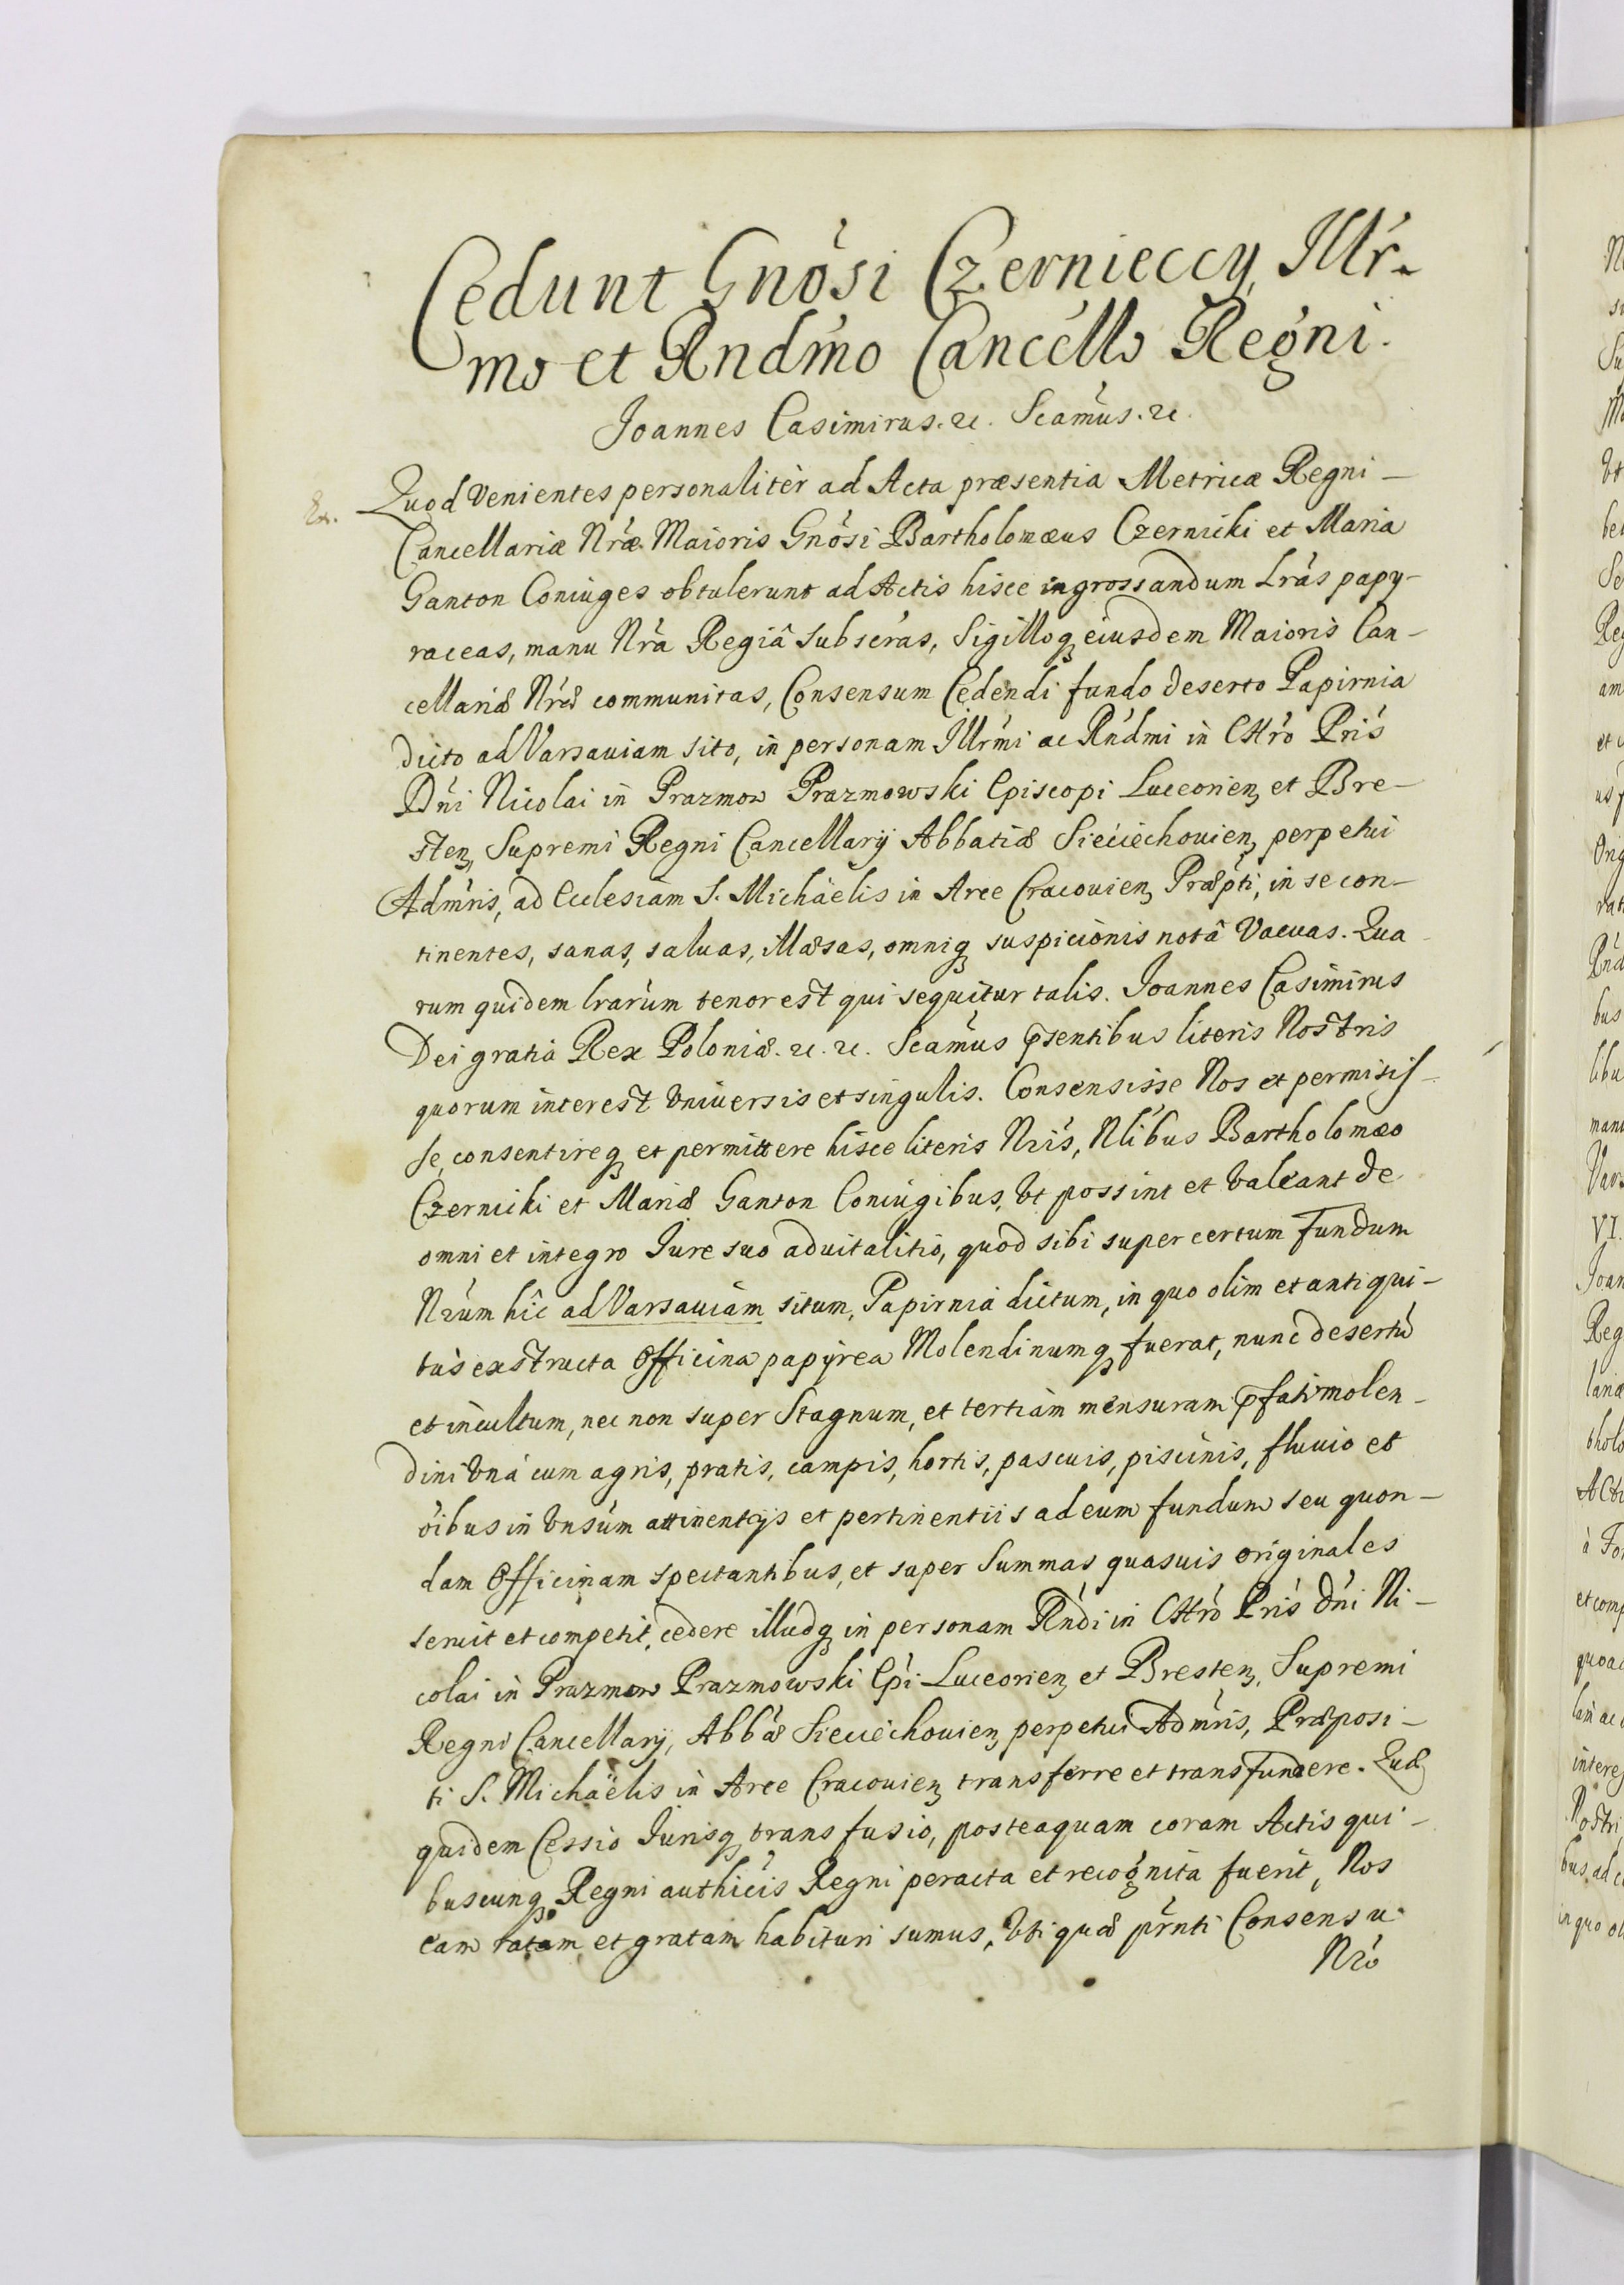 Cedunt Gnosi Czernieccy, Illr-
mo et Rndmo Cancello Regni.
Joannes Casimirus. &c. Scamus. &c.
Ex. Quod Venientes personaliter ad Acta præsentia Metricæ Regni -
Cancellariæ Nræ Maioris Gnosi Bartholomæus Czernicki et Maria
Ganton Coniuges obtulerunt ad Actis hisce ingrossandum Lras papy-
raceas, manu Nra Regiâ subscras, Sigilloq eiusdem Maioris Can-
cellariæ Nræ communitas, Consensum Cedendi fundo deserto Papirnia
dicto ad Varsauiam sito, in personam Illrmi ac Rndmi in Chro Pris
Dni Nicolai in Prazmow Prazmowski Episcopi Luceorien, et Bre-
sten, Supremi Regni Cancellarij Abbatiæ Sieciechouien, perpetui
Admris, ad Ecclesiam S. Michaelis in Arce Cracouien, Præpti, in se con-
tinentes, sanas, saluas, illæsas, omniq suspicionis notâ Vacuas. Qua
rum quidem lrarum tenor est qui sequitur talis. Joannes Casimirus
Dei gratia Rex Poloniæ. &c. &c. Scamus psentibus literis Nostris
quorum interest Vniuersis et singulis. Consensisse Nos et permisis-
se, consentireq et permittere hisce literis Nris, Nlibus Bartholomæo
Czernicki et Mariæ Ganton Coniugibus, Vt possint et Valeant de
omni et integro Jure suo aduitalitio, quod sibi super certum fundum
Nrum hic ad Varsauiam situm, Papirnia dictum, in quo olim et antiqui-
tus exstructa Officina papyrea Molendinumq fuerat, nunc desertu
et incultum, nec non super Stagnum, et tertiam mensuram pfati molen-
dini Vna cum agris, pratis, campis, hortis, pascuis, piscinis, fluuio et
oibus in Vnsum attinentijs et pertinentiis ad eum fundum seu quon-
dam Officinam spectantibus, et super Summas quasuis originales
seruit et competit, cedere illudq in personam Rndi in Chro Pris Dni Ni-
colai in Prazmow Prazmowski Epi Luceorien, et Bresten, Supremi
Regni Cancellarij, Abbæ Sieciechouien, perpetui Admris, Præposi-
ti S. Michaëlis in Arce Cracouien, transferre et transfundere. Quæ
quidem Cessio Jurisq transfusio, posteaquam coram Actis qui-
buscunq Regni authicis Regni peracta et recognita fuerit, Nos
eam ratam et gratam habituri sumus, Vti quæ prnti Consensu
Nro